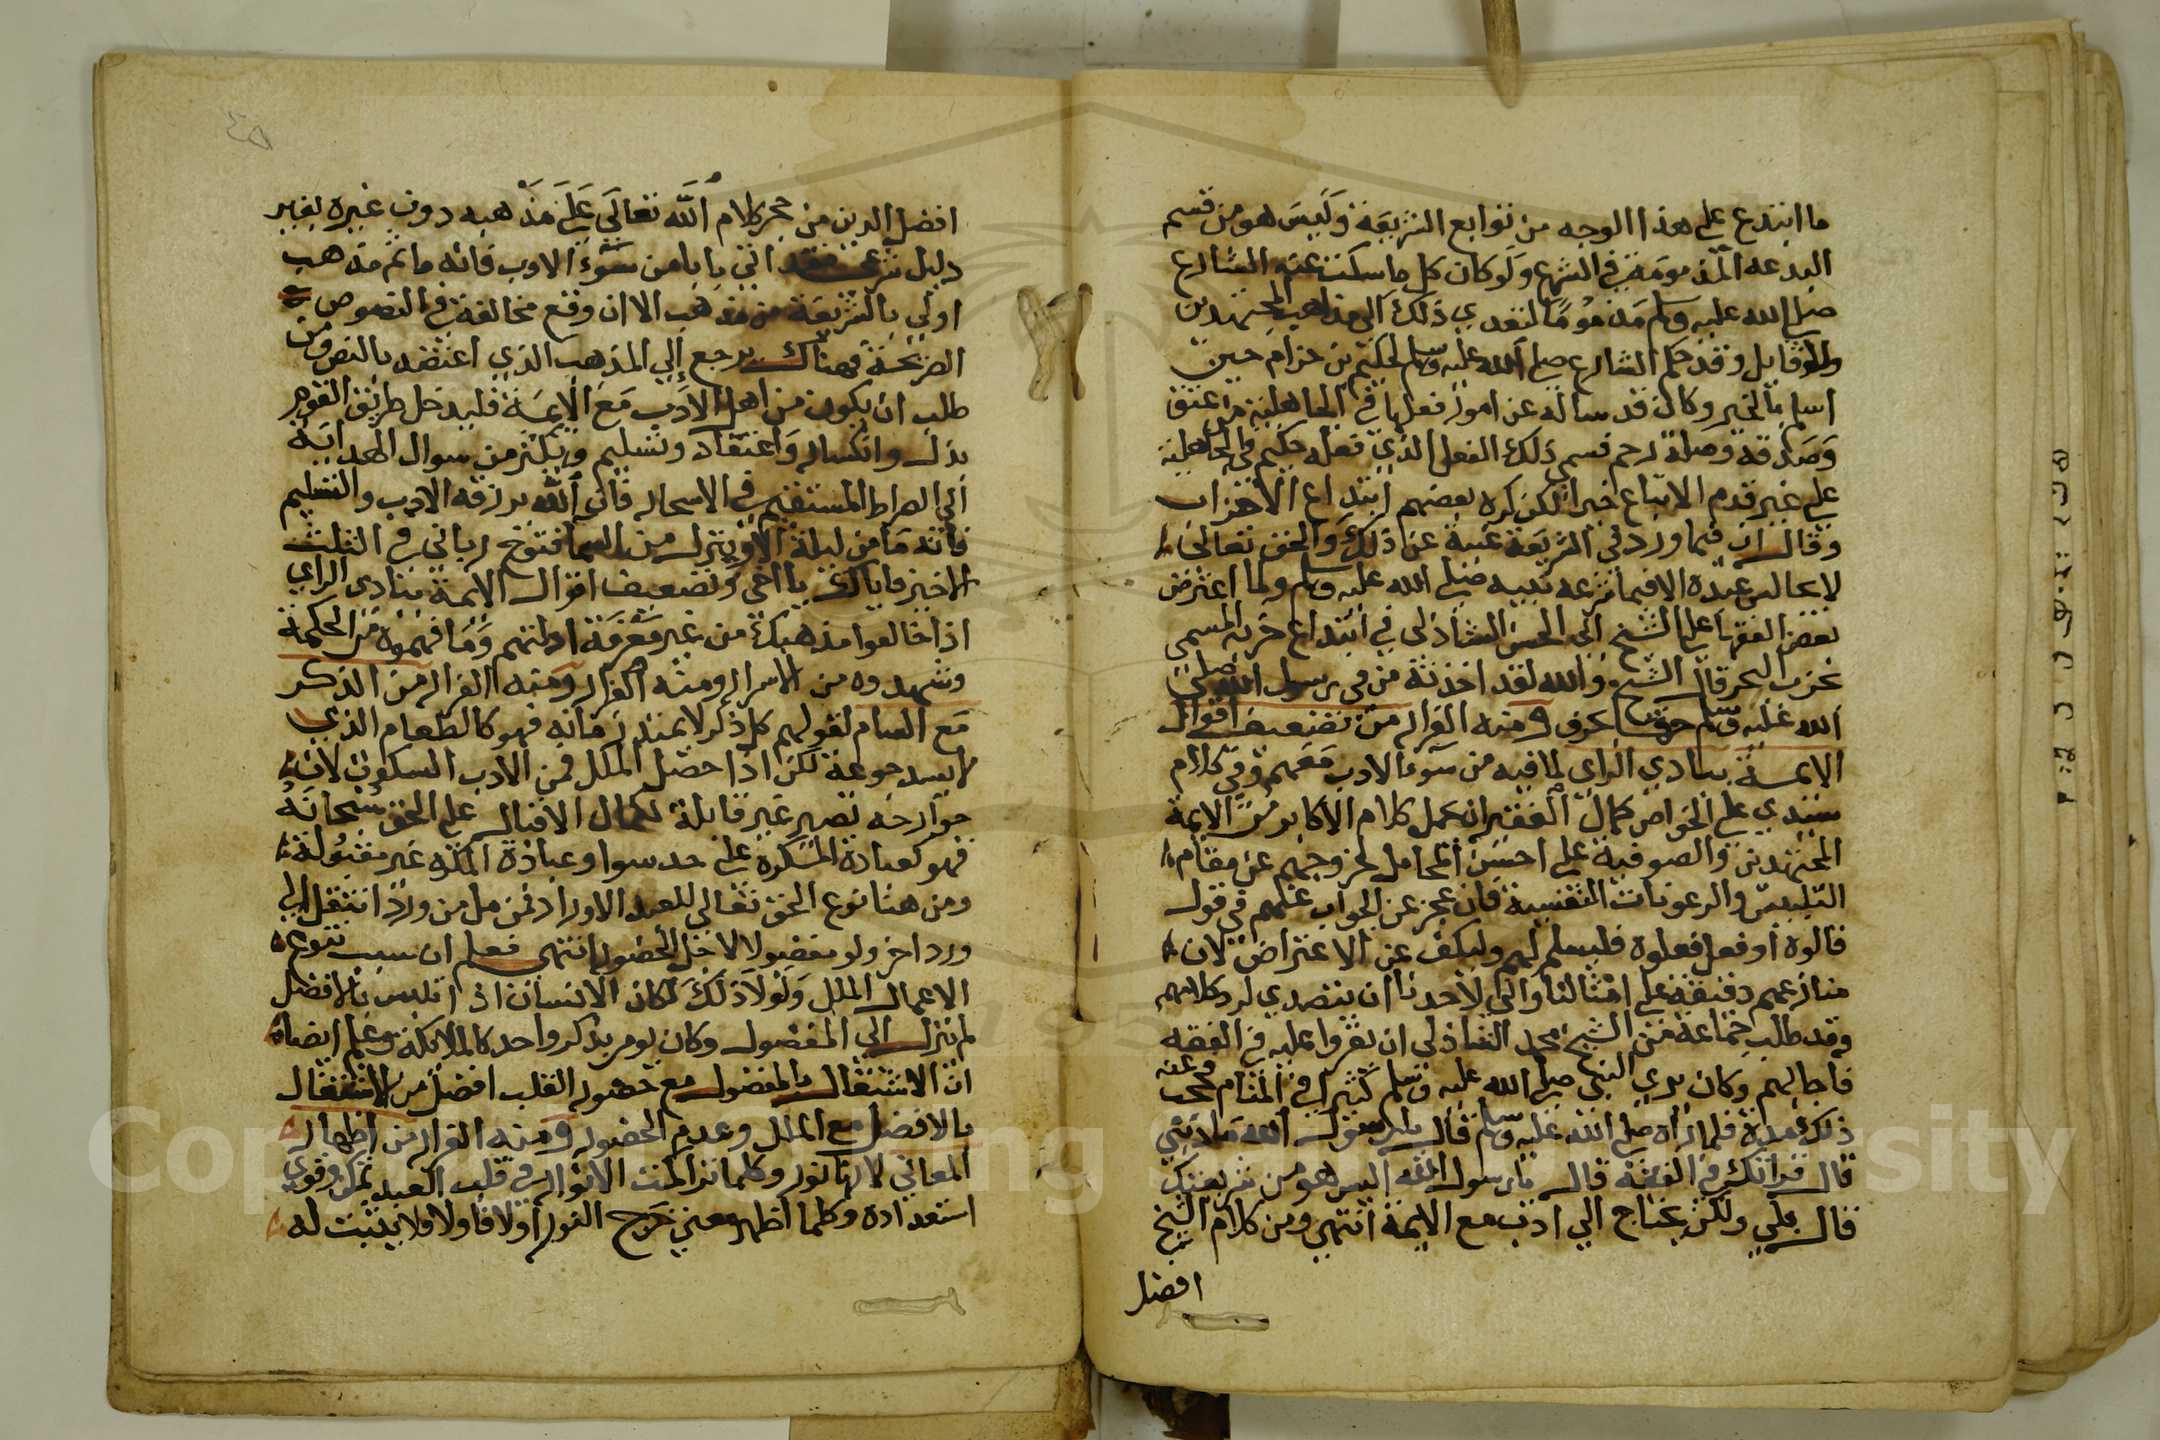 ما ابتدع علي هذا الوجه من توابع الشريعة وليس هو من قسم
البدعه المذمومة في الشرع ولو كان كل ما سكت عنه الشارع
صلي الله عليه وسلم مذموما لتعدي ذلك الي مذاهب المجتهدين
ولا قايل وقد حكم الشارع صلي الله عليه وسلم لحكيم بن حزام حين
اسلم بالخير وكان قد ساله عن امور فعلها في الجاهلية من عتق
وصدقة وصلة رحم فسمي ذلك الفعل الذي فعله حكيم في الجاهلية
علي غير قدم الاتباع خيرا لكن كره بعضهم ابتداع الاحزاب
وقال ان فيما ورد في الشريعة غنية عن ذلك والحق تعالي
لا يجالس عبده الا فيما شرعه نبيه صلي الله عليه وسلم ولما اعترض
بعض الفقها علي الشيخ ابي الحسن الشاذلي في ابتداع حزبه المسمي
بحزب البحر قال الشيخ والله لقد اخذته من في رسول الله صلي
الله عليه وسلم حرفا بحرف ومنه الفرار من تضعيف اقوال
الايمة ببادي الراي لما فيه من سوء الادب معهم وفي كلام
سيدي علي الخواص كمال الفقير ان يحمل كلام الاكابر من الايمة
المجتهدين والصوفية علي احسن المحامل لخروجهم عن مقام
التلبيس والرعونات النفسية فان عجز عن الجواب عنهم في قول
قالوه او فعل فعلوه فليسلم لهم وليكف عن الاعتراض لان
منازعهم دقيقة علي امثالنا واني لاحدنا ان يتصدي لرد كلامهم
وقد طلب جماعة من الشيخ محمد الشاذلي ان يقروا عليه في الفقه
فاجابهم وكان يري النبي صلي الله عليه وسلم كثيرا في المنام فحجب عنه
ذلك مدة فلما راه صلي الله عليه وسلم قال يا رسول الله ما ذنبي
قال قراتك في الفقه قال يا رسول الله اليس هو من شريعتك
قال بلي ولكن يحتاج الي ادب مع الايمة انتهي ومن كلام الشيخ
افضل
افضل الدين من حجر كلام الله تعالي علي مذهبه دون غيره بغير
دليل شرعي فقد اتي بابا من سوء الادب فانه ما ثم مذهب
اولي بالشريعة من مذهب الا ان وقع مخالفة في النصوص
الصريحة فهناك يرجع الي المذهب الذي اعتضد بالنص ومن
طلب ان يكون من اهل الادب مع الايمة فليدخل طريق القوم
بذل وانكسار واعتقاد وتسليم ويكثر من سوال الهداية
الي الصراط المستقيم في الاسحار فان الله يرزقه الادب والتسليم
فانه ما من ليلة الا وينزل من السما فتوح رباني في الثلث
الاخير فاياك يا اخي وتضعيف اقوال الايمة ببادي الراي
اذا خالفوا مذهبك من غير معرفة ادلتهم وما فهموه من الحكمة
وشهدوه من الاسرار ومنه الفرار ومنه الفرار من الذكر
مع السام لقولهم كل ذكر لا يمتد زمانه فهو كالطعام الذي
لا يسد جوعة لكن اذا حصل الملل فمن الادب السكوت لان
جوارحه تصير غير قابلة لكمال الاقبال علي الحق سبحانه
فهو كعبادة المكره علي حد سوا وعبادة المكره غير مقبولة
ومن هنا نوع الحق تعالي للعبد الاوراد فمن مل من ورد انتقل الي
ورد اخر ولو مفضولا لاجل الحضور انتهي فعلم ان سبب تنوع
الاعمال الملل ولولا ذلك لكان الانسان اذا تلبس بالافضل
لم ينزل الي المفضول وكان يومر بذكر واحد كالملائكة وعلم ايضا
ان الاشتغال بالمفضول مع حضور القلب افضل من الاشتغال
بالافضل مع الملل وعدم الحضور ومنه الفرار من اظهار
المعاني لانها نور وكلما تراكمت الانوار في قلب العبد تمكن وقوي
استعداده وكلما اظهر معني خرج النور اولا فاولا فلا يثبت له